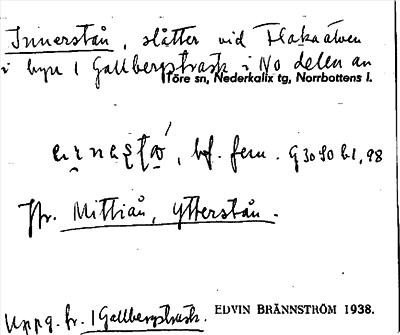 Innerstån, slåtter vid Flakaätven
i byn 1 Gallbergstrask i NO delen an
Töre sn, Nederkalix tg, Norrbottens l.
bf. fem. G 3090 b1, 98
Jfr. Mittiån, Ytterstån.
Uppg. fr. 1 Gallbergstrask. EDVIN BRÄNNSTRÖM 1938.